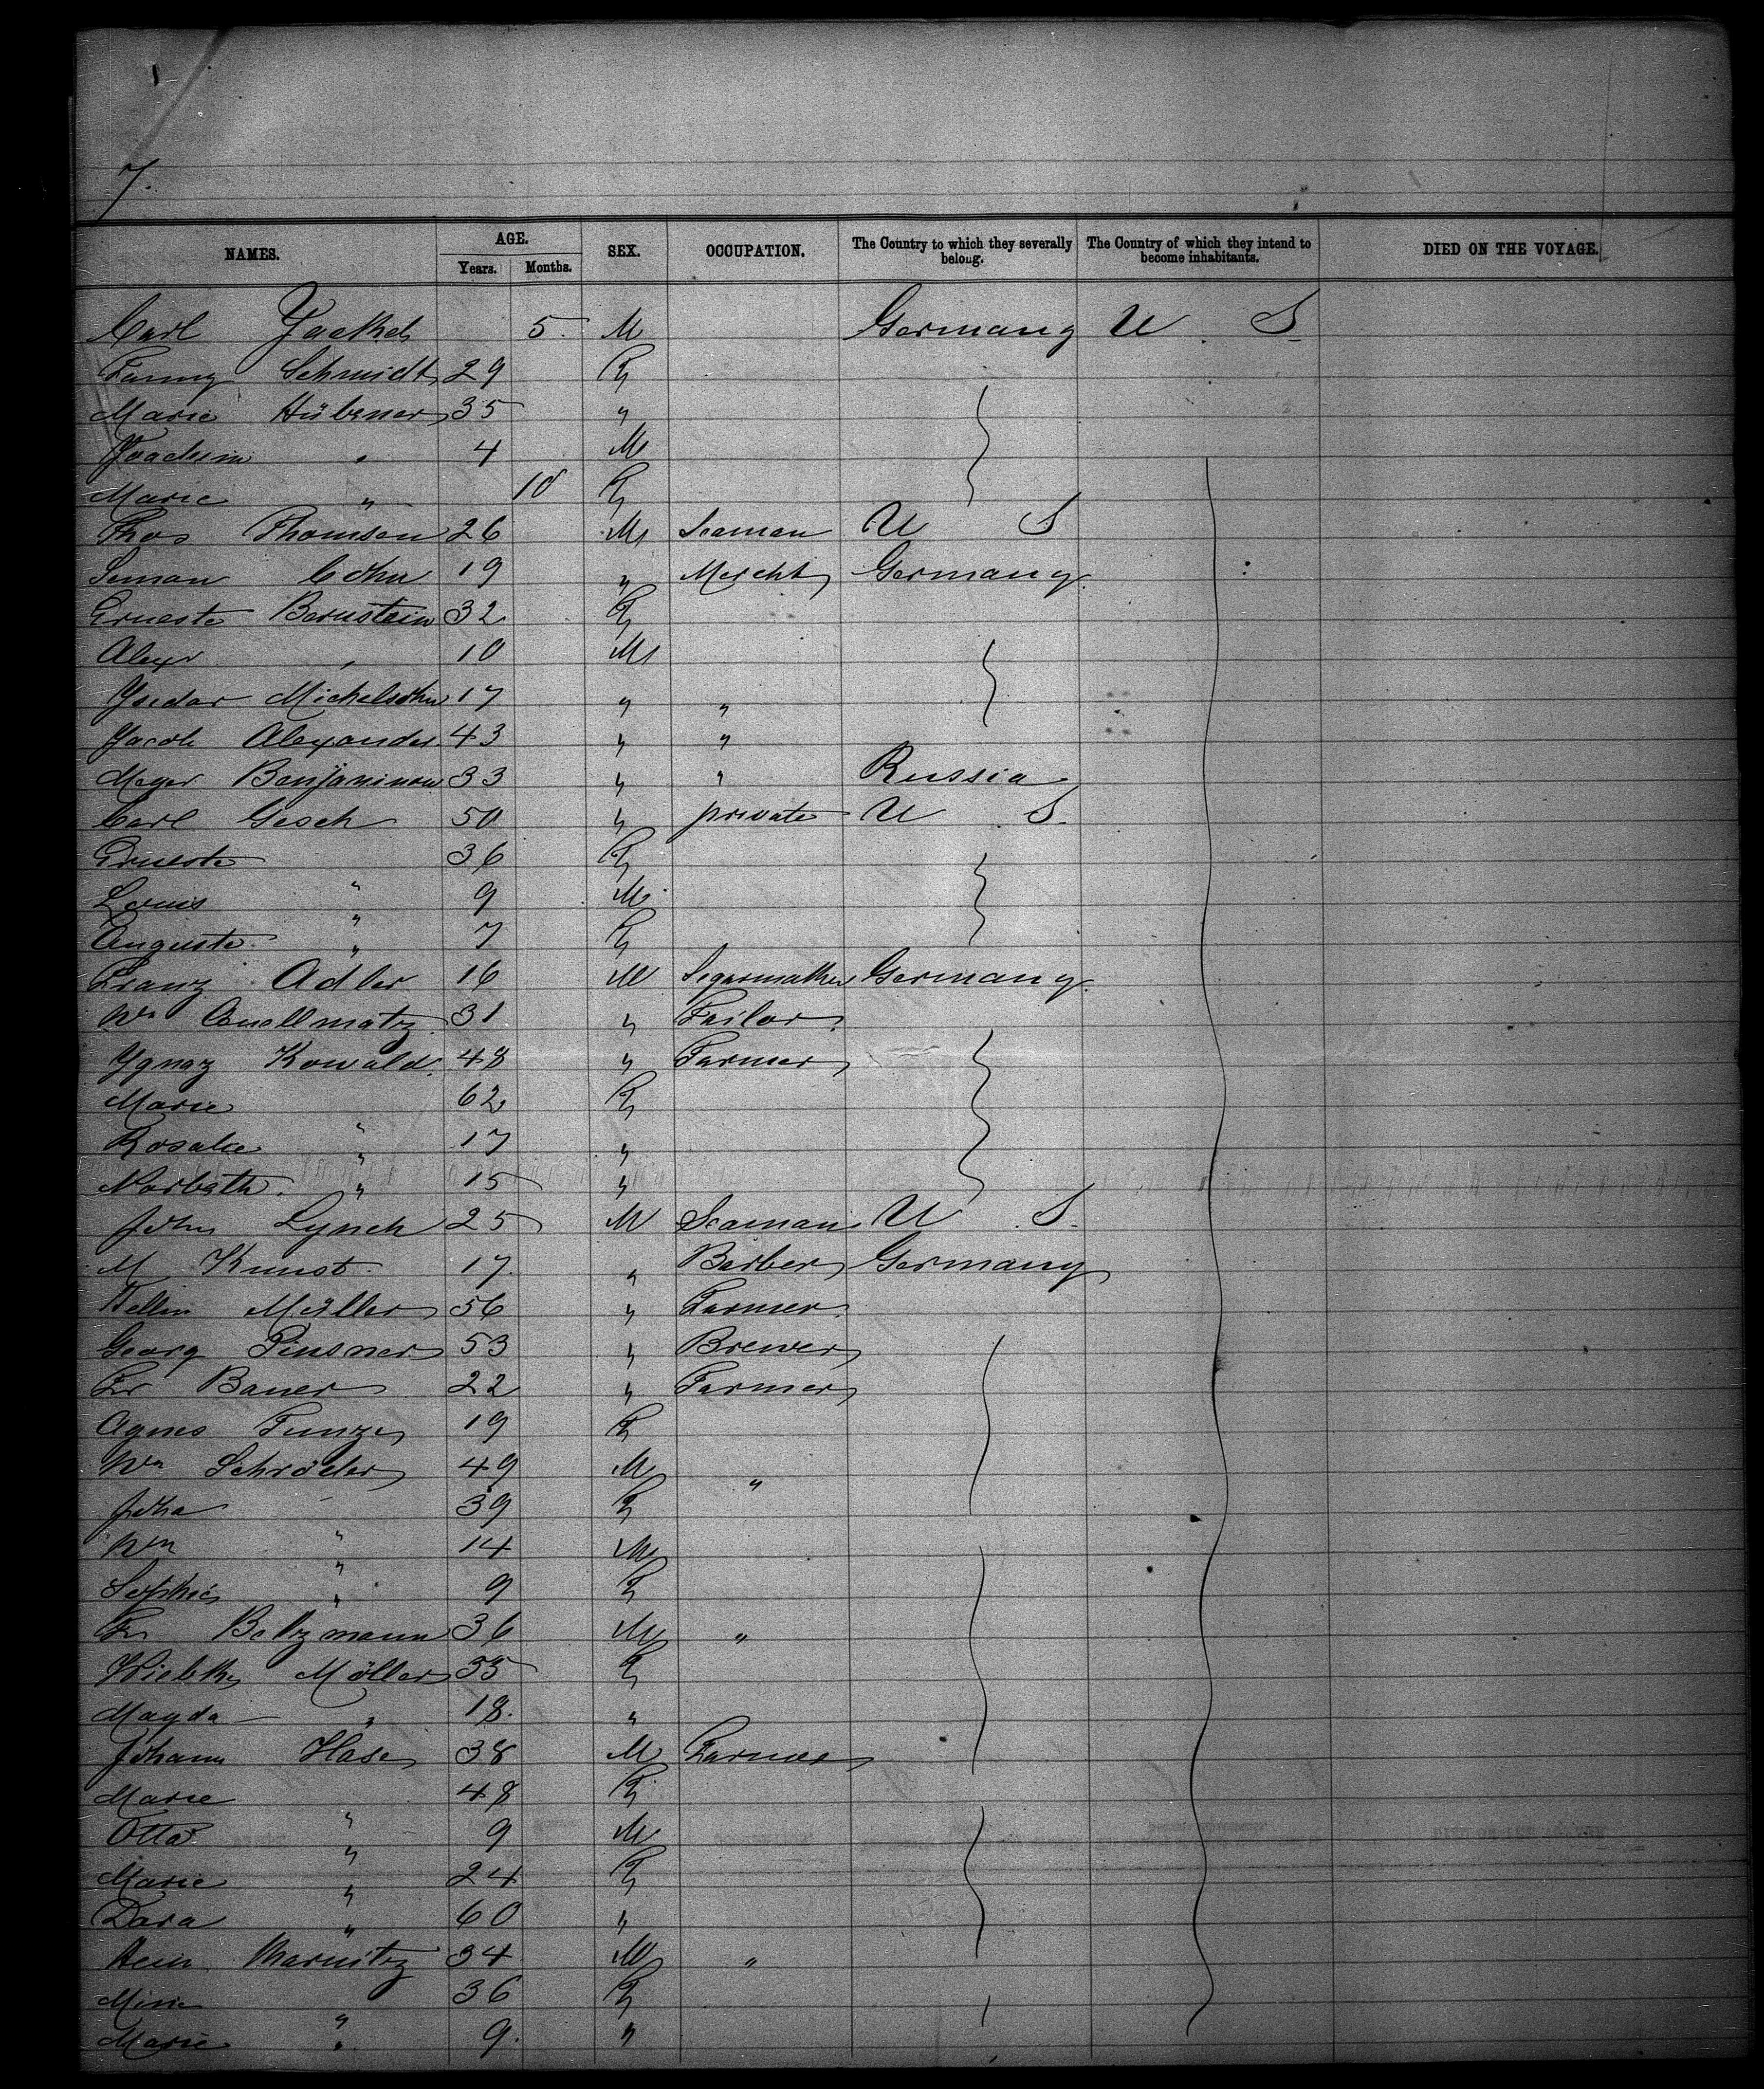 7.
NAMES. AGE. SEX. OCCUPATION. The Country to which they severally belong. The Country of which they intend to become inhabitants. DIED ON THE VOYAGE.
Years. Months.
Carl Jaekel 5 M Germany U S
Fanny Schmidt 29 F
Marie Hübner 35 "
Joachim " 4 M
Marie " 10 F
Thos Thomsen 26 M Seaman U S
Seman Cohn 19 " Mercht Germany
Erneste Bernstein 32 F
Alexr " 10 M
Ysedor Michelsohn 17 " "
Jacob Alexander 43 " "
Meyer 33 " " Russia
Carl Gesch 50 " private U S
Erneste " 36 F
Louis " 9 M
Auguste " 7 F
Franz Adler 16 M Segarmaker Germany
Wm 31 " Tailor
Ygnaz Kowald 48 " Farmer
Marie " 62 F
Rosalie " 17 "
" 15 "
John Lynch 25 M Seaman U S
M Kunst 17 " Barber Germany
Müller 56 " Farmer
Georg 53 " Brewer
Fr Bauer 22 " Farmer
Agnes 19 F
Wm Schröder 49 M "
Joha " 39 F
Wm " 14 M
Sophie " 9 F
Fr 36 M "
Wiebke Möller 35 F
Magda " 18 "
Johann Hase 38 M Farmer
Marie " 48 F
Otto " 9 M
Marie " 24 F
Dora " 60 "
Hein 34 M "
Mine " 36 F
Marie " 9 "